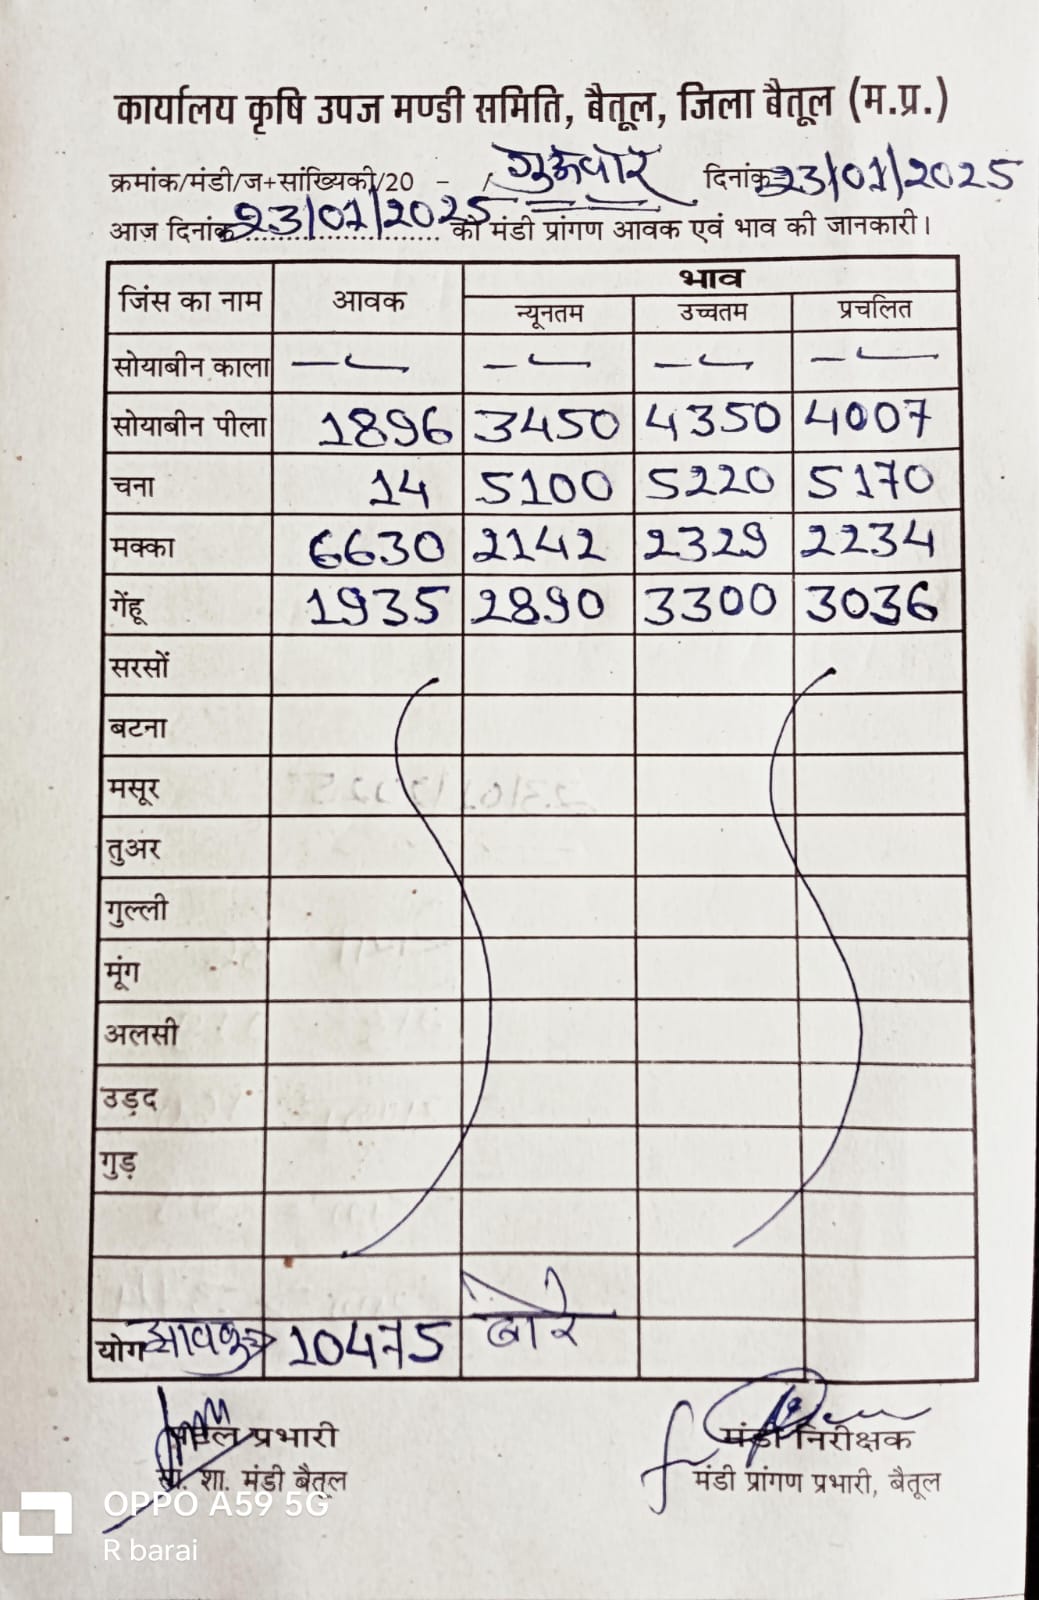 कार्यालय कृषि उपज मण्डी समिति, बैतूल, जिला बैतूल (म.प्र.)
क्रमांक/मंडी/ज+सांख्यिकी/20 - / गुरूवार दिनांक 23/01/2025
आज दिनांक 23/01/2025 की मंडी प्रांगण आवक एवं भाव की जानकारी।
जिंस का नाम आवक भाव
न्यूनतम उच्चतम प्रचलित
सोयाबीन काला — — — —
सोयाबीन पीला 1896 3450 4350 4007
चना 14 5100 5220 5170
मक्का 6630 2142 2329 2234
गेंहू 1935 2890 3300 3036
सरसों
बटना
मसूर
तुअर
गुल्ली
मूंग
अलसी
उड़द
गुड़
योग आवक 10475 बोरे
प्रभारी मंडी निरीक्षक
शा. मंडी बैतूल मंडी प्रांगण प्रभारी, बैतूल
OPPO A59 5G
R barai